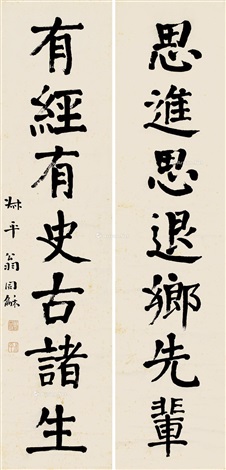 思進思退鄉先輩
有經有史古諸生
叔平翁同龢